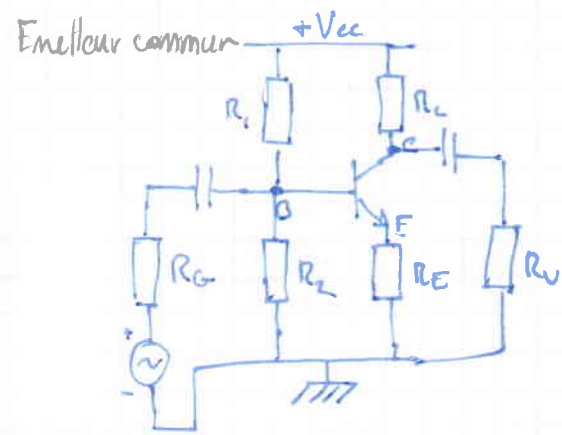 Emetteur commun
+Vcc
R1
RC
C
B
E
RG
R2
RE
RU
+
-